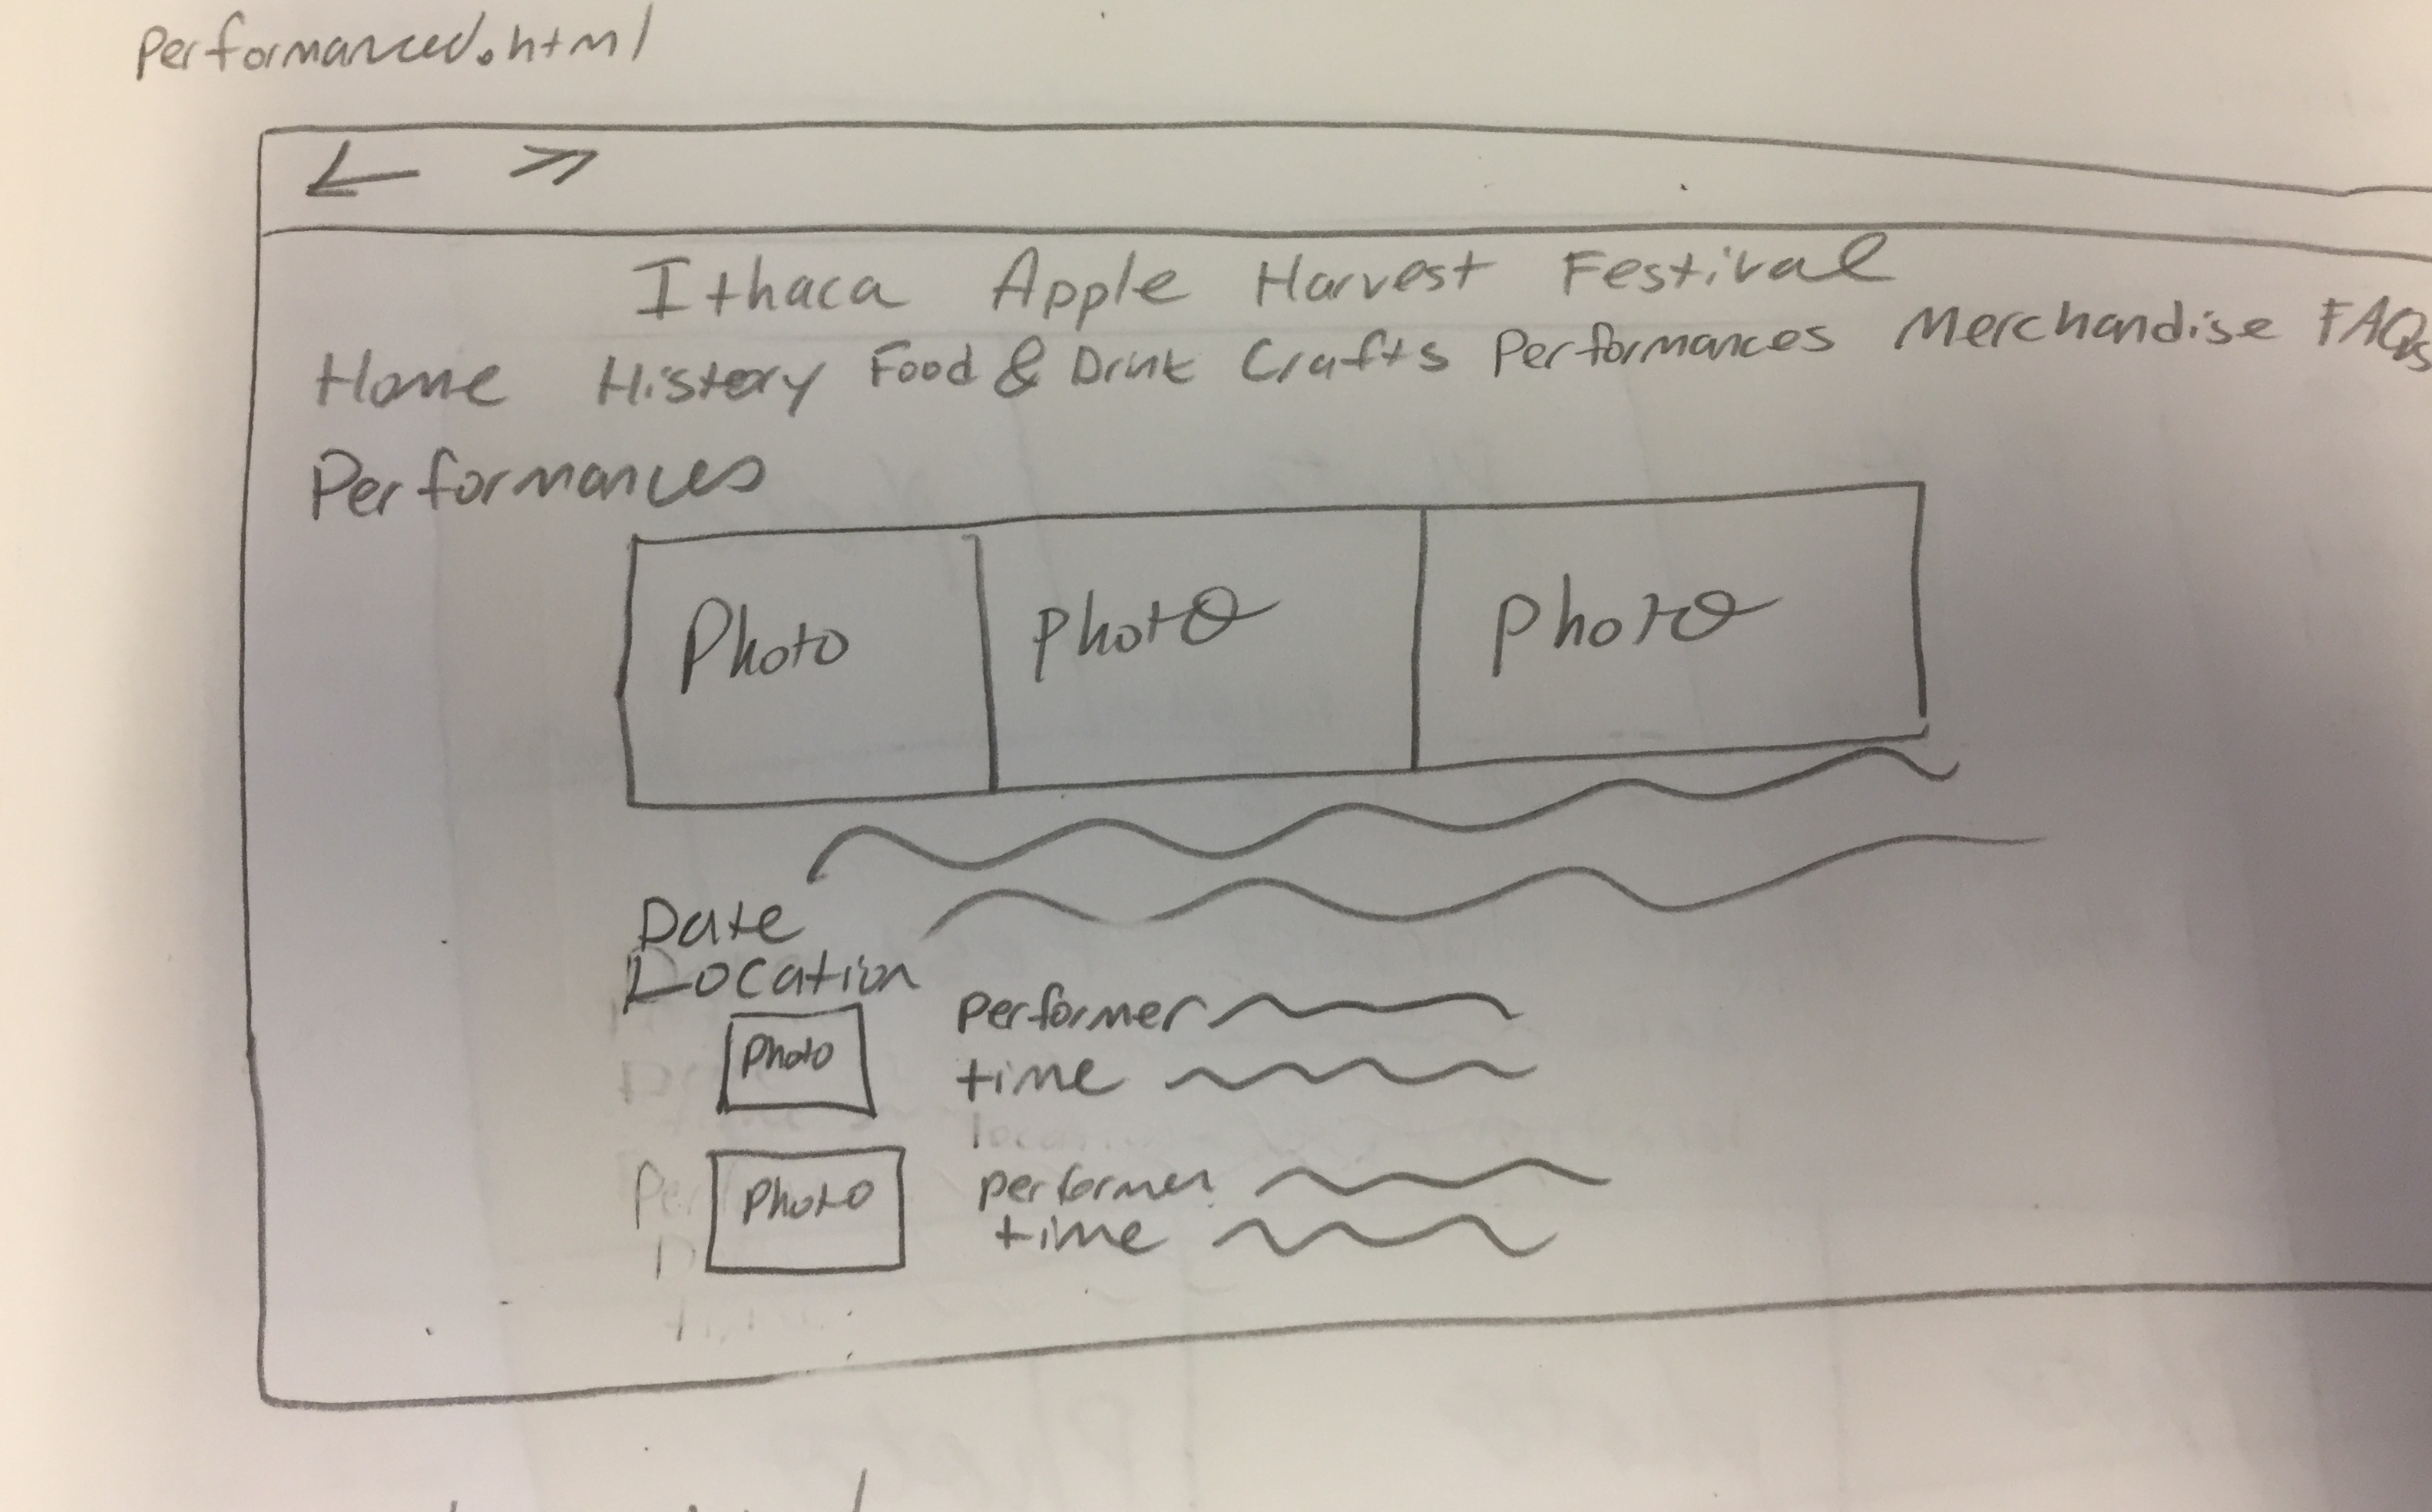 performances.html
Ithaca Apple Harvest Festival
Home History Food & Drink Crafts Performances Merchandise FAQs
Performances
Photo photo photo
Date
Location
Photo performer
time
Photo performer
time